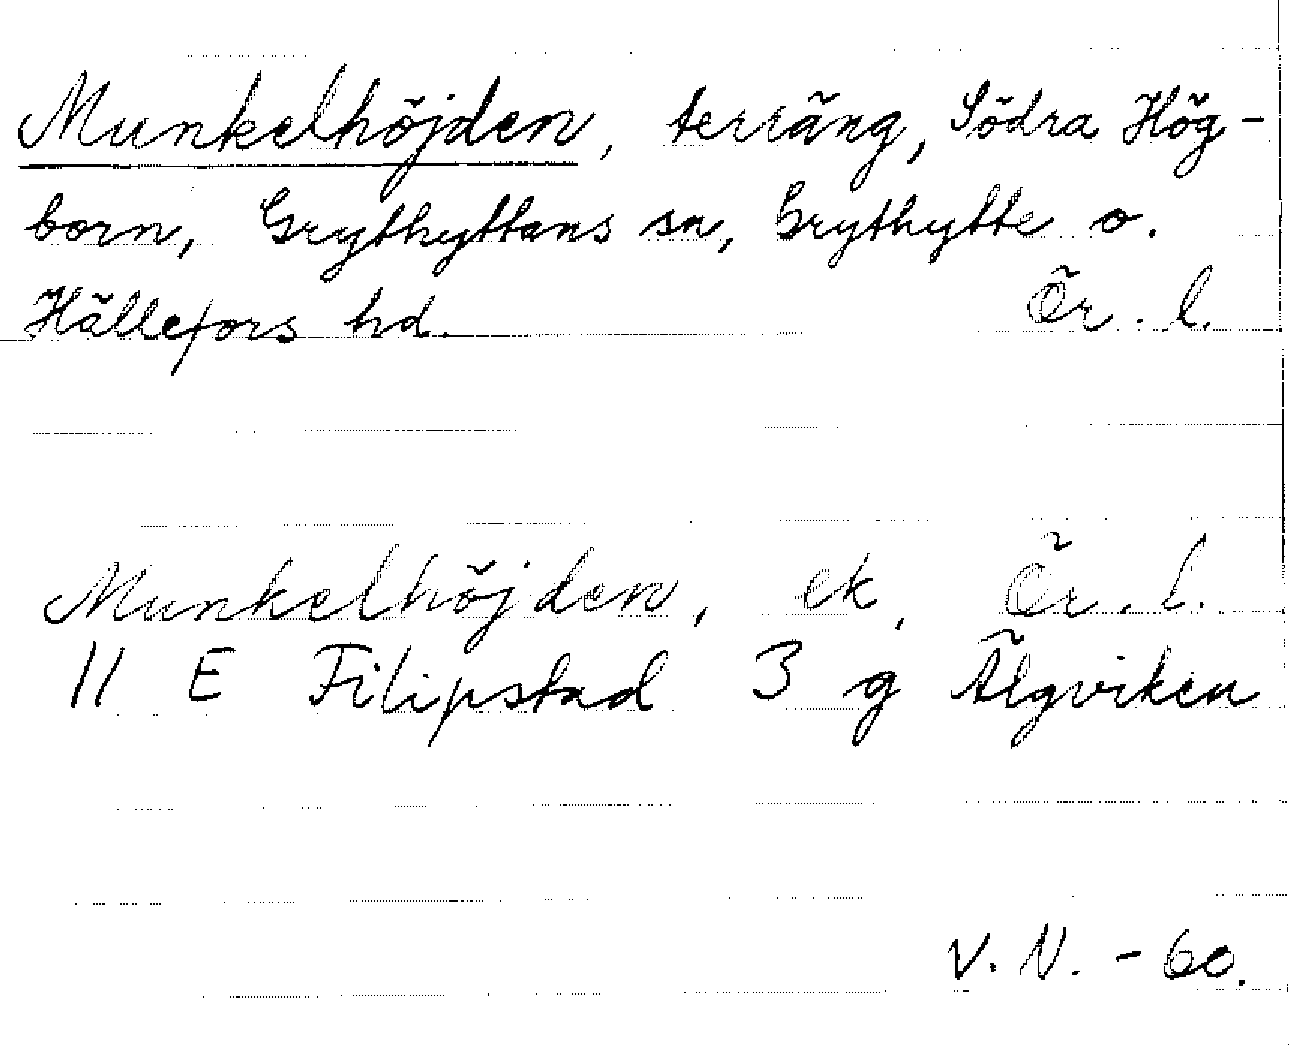 Munkelhöjden, terräng, Södra Hög-
born, Grythyttans sn, Grythytte o.
Hällefors hd. Ör. l.
Munkelhöjden, ek, Ör. l.
11 E Filipstad 3 g Älgviken
V. N. - 60.